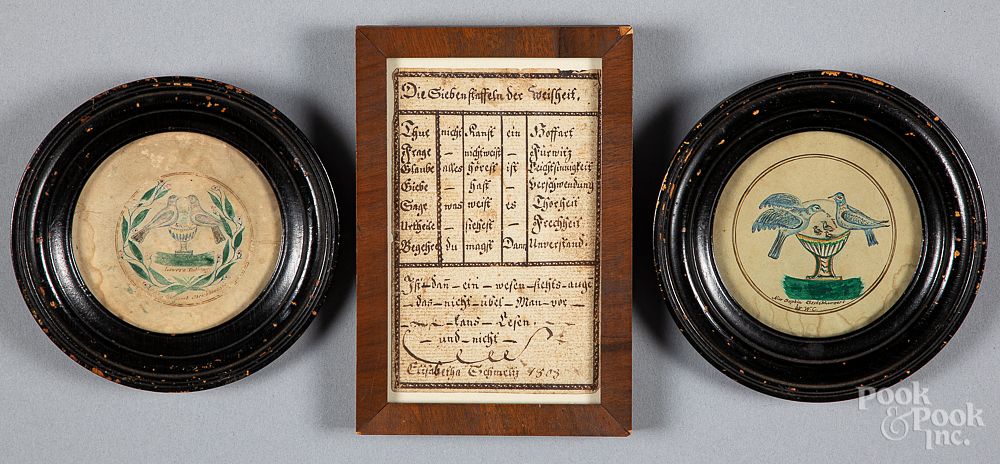 Die Siebenstaffeln der Weisheit.
Thue nicht Kanst ein Hoffart
Frage – nicht weist – Fürwitz
Glaube alles hörest ist Leichtsinnigkeit
Giebe – hast – Verschwendung
Sage was weist es Thorheit
Urtheile – siehest – Frechheit
Begehre du magst Dan Unverstand.
Ist – dan – ein – wesen – siehts – auge
– das – nicht – übel – Man – vor –
– lans – Lesen,
– und – nicht –
Elisabetha 1803
Miss Sophia
by W.C.
POOK
& POOK
INC.